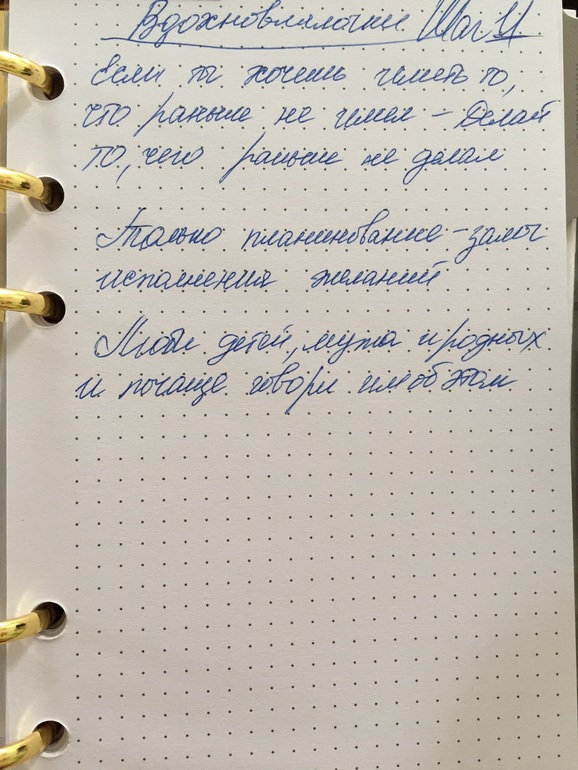 Вдохновлялочки Шаг 11
Если ты хочешь иметь то,
что раньше не имел – Делай
то, чего раньше не делал
Только планинование – залог
исполнения желаний
Люби детей, мужа и родных
и почаще говори им об этом